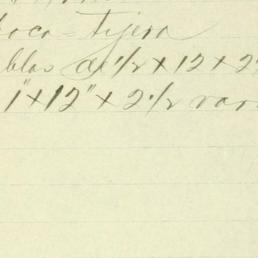 oca-tijera
blas de 1/2 x 12 x 2
1" x 12" x 2 1/2 var